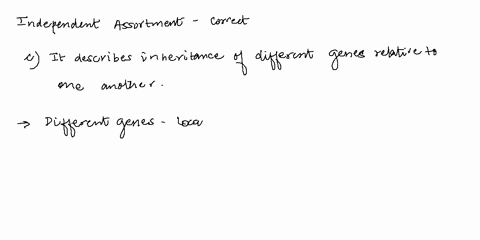 Independent Assortment - correct
c) It describes inheritance of different genes relative to
one another.
→ Different genes - loca